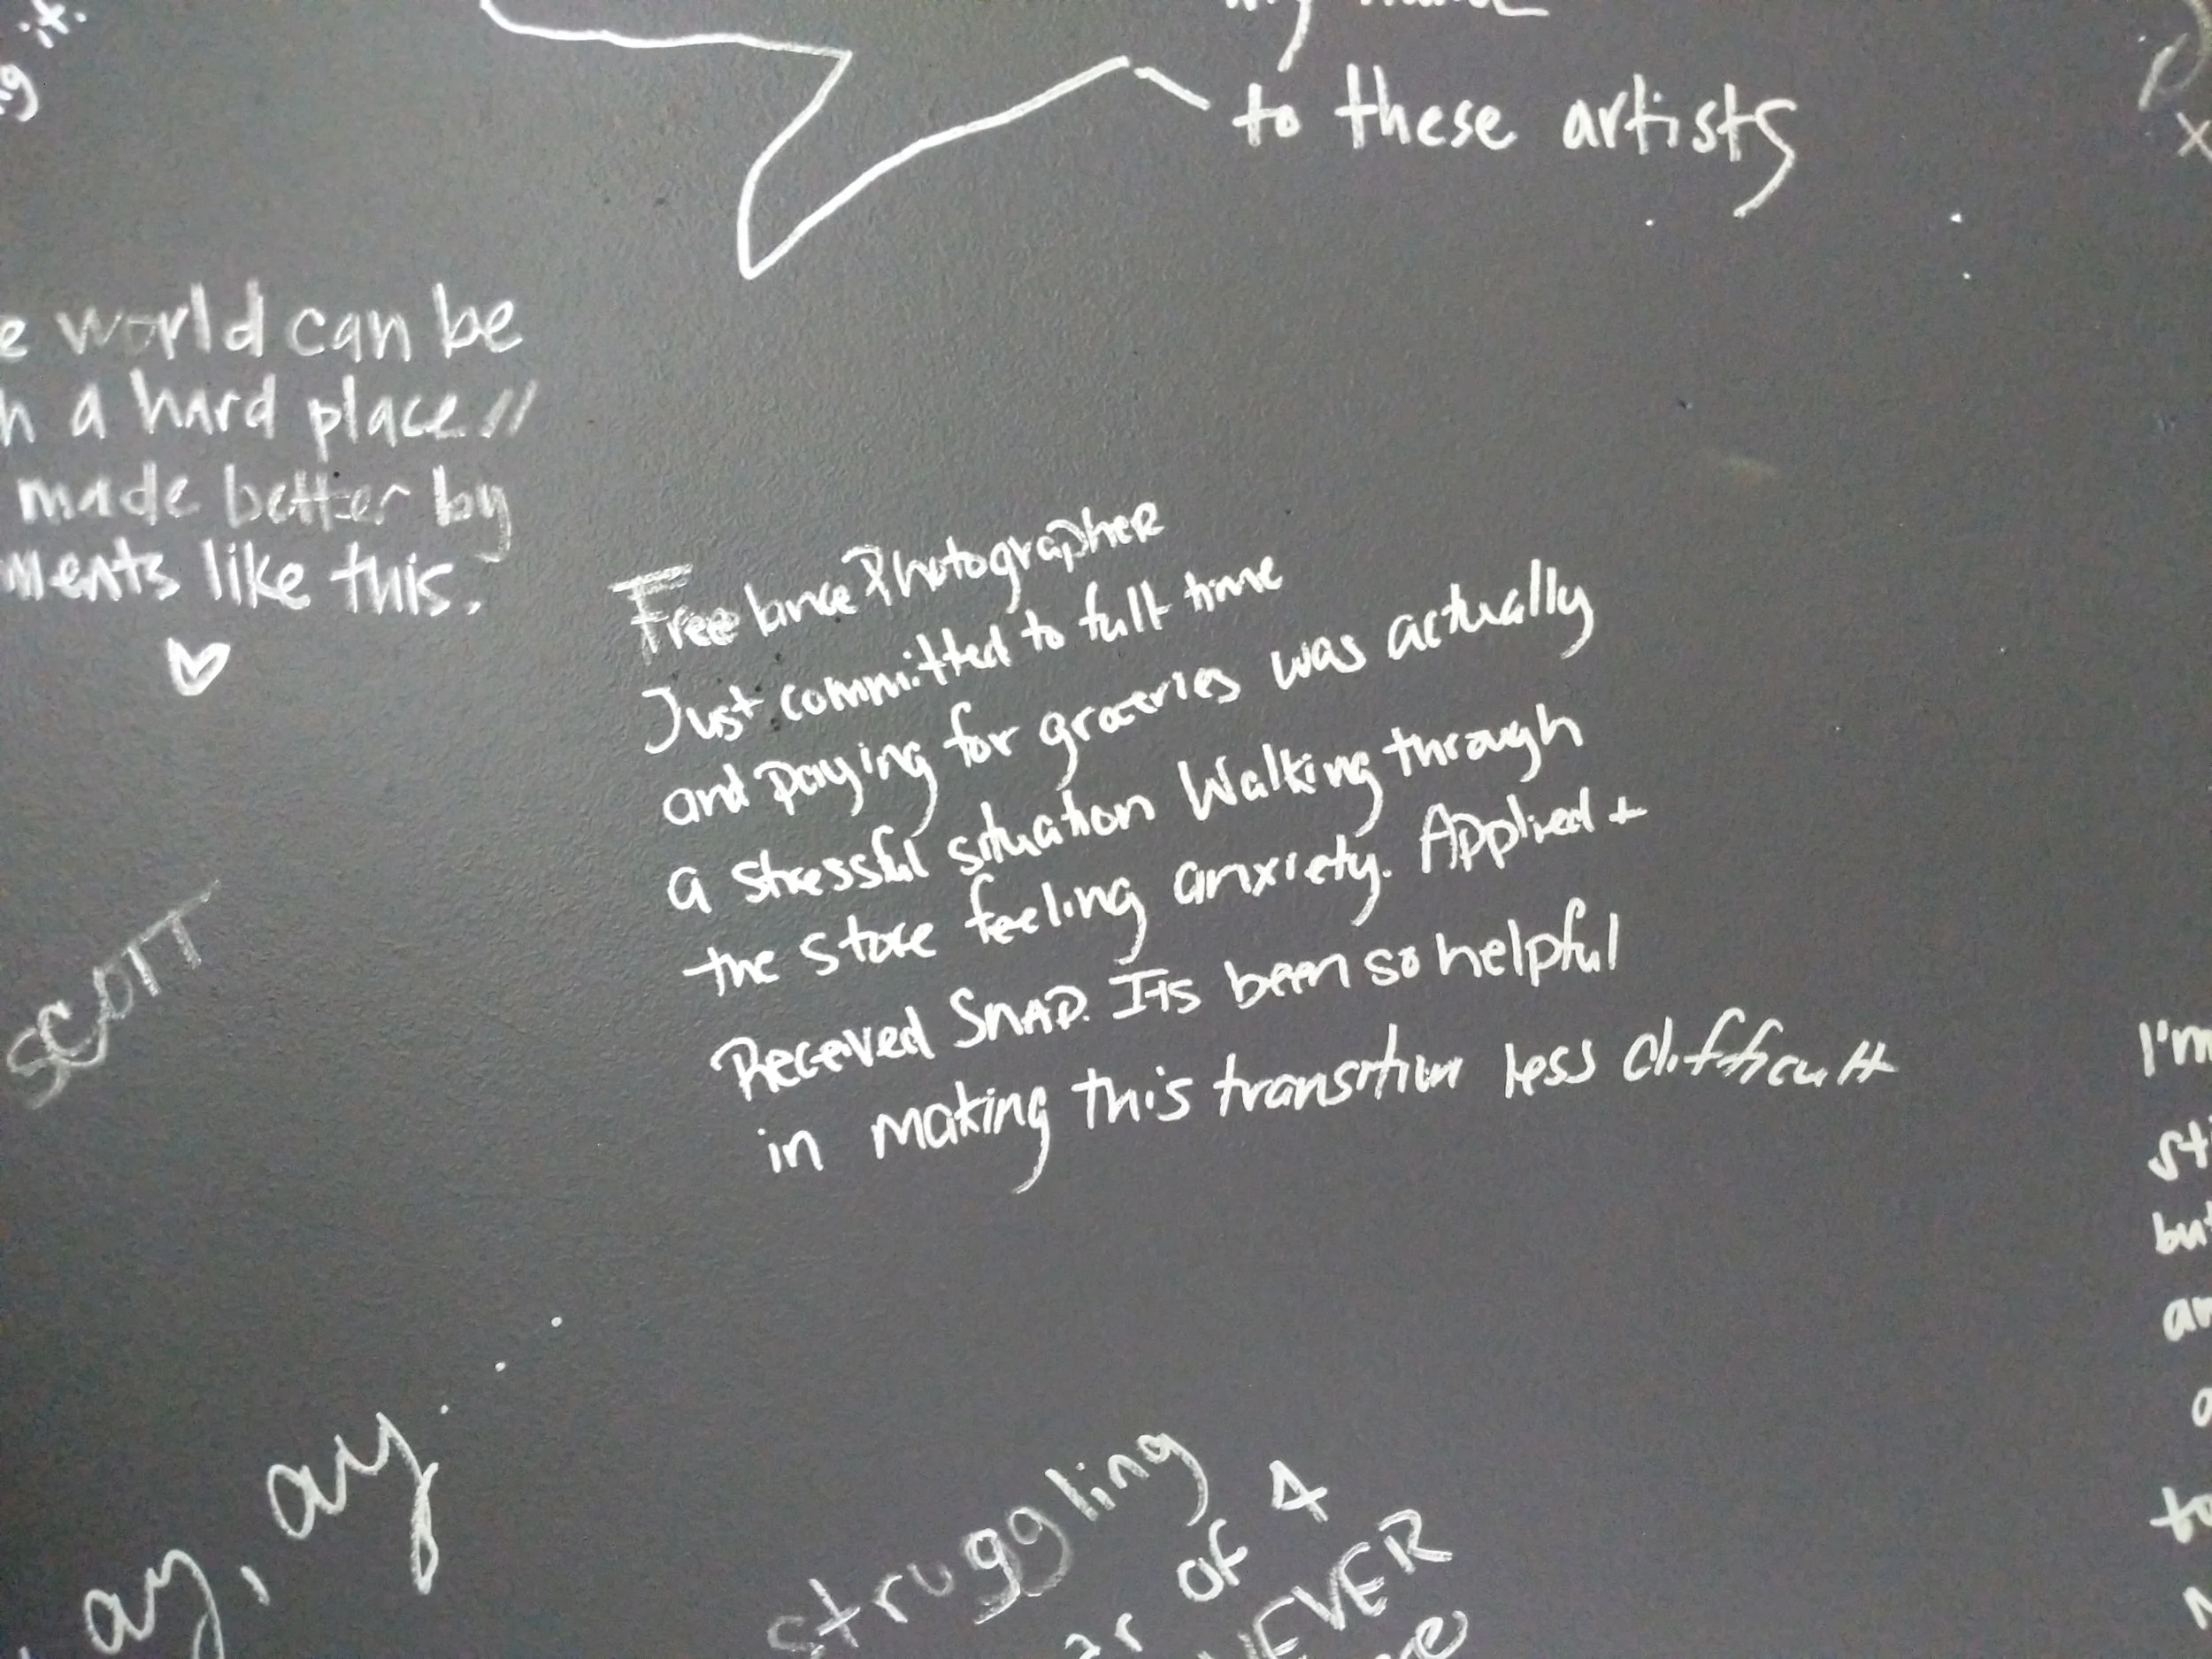 g it.
to these artists
e world can be
h a hard place //
made better by
ments like this.
Freelance Photographer
Just committed to full time
and paying for groceries was actually
a stressful situation Walking through
the store feeling anxiety. Applied +
Received SNAP. Its been so helpful
in making this transition less difficult
SCOTT
ay, ay.
struggling
of 4
NEVER
I'm